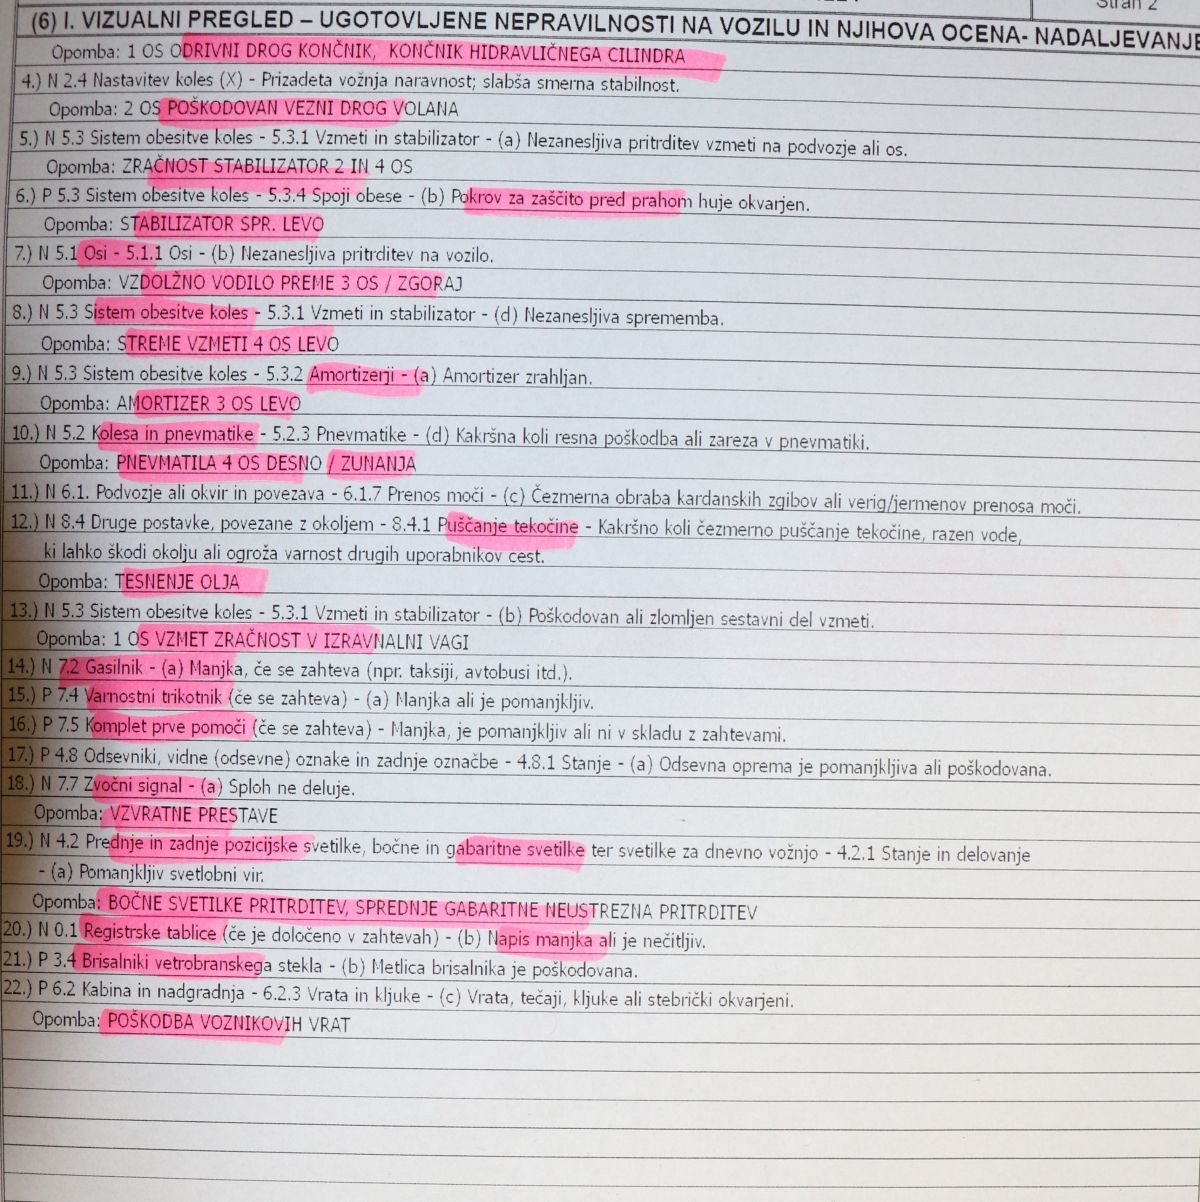 Stran 2
(6) I. VIZUALNI PREGLED – UGOTOVLJENE NEPRAVILNOSTI NA VOZILU IN NJIHOVA OCENA- NADALJEVANJE
Opomba: 1 OS ODRIVNI DROG KONČNIK, KONČNIK HIDRAVLIČNEGA CILINDRA
4.) N 2.4 Nastavitev koles (X) - Prizadeta vožnja naravnost; slabša smerna stabilnost.
Opomba: 2 OS POŠKODOVAN VEZNI DROG VOLANA
5.) N 5.3 Sistem obesitve koles - 5.3.1 Vzmeti in stabilizator - (a) Nezanesljiva pritrditev vzmeti na podvozje ali os.
Opomba: ZRAČNOST STABILIZATOR 2 IN 4 OS
6.) P 5.3 Sistem obesitve koles - 5.3.4 Spoji obese - (b) Pokrov za zaščito pred prahom huje okvarjen.
Opomba: STABILIZATOR SPR. LEVO
7.) N 5.1 Osi - 5.1.1 Osi - (b) Nezanesljiva pritrditev na vozilo.
Opomba: VZDOLŽNO VODILO PREME 3 OS / ZGORAJ
8.) N 5.3 Sistem obesitve koles - 5.3.1 Vzmeti in stabilizator - (d) Nezanesljiva sprememba.
Opomba: STREME VZMETI 4 OS LEVO
9.) N 5.3 Sistem obesitve koles - 5.3.2 Amortizerji - (a) Amortizer zrahljan.
Opomba: AMORTIZER 3 OS LEVO
10.) N 5.2 Kolesa in pnevmatike - 5.2.3 Pnevmatike - (d) Kakršna koli resna poškodba ali zareza v pnevmatiki.
Opomba: PNEVMATILA 4 OS DESNO / ZUNANJA
11.) N 6.1. Podvozje ali okvir in povezava - 6.1.7 Prenos moči - (c) Čezmerna obraba kardanskih zgibov ali verig/jermenov prenosa moči.
12.) N 8.4 Druge postavke, povezane z okoljem - 8.4.1 Puščanje tekočine - Kakršno koli čezmerno puščanje tekočine, razen vode,
ki lahko škodi okolju ali ogroža varnost drugih uporabnikov cest.
Opomba: TESNENJE OLJA
13.) N 5.3 Sistem obesitve koles - 5.3.1 Vzmeti in stabilizator - (b) Poškodovan ali zlomljen sestavni del vzmeti.
Opomba: 1 OS VZMET ZRAČNOST V IZRAVNALNI VAGI
14.) N 7.2 Gasilnik - (a) Manjka, če se zahteva (npr. taksiji, avtobusi itd.).
15.) P 7.4 Varnostni trikotnik (če se zahteva) - (a) Manjka ali je pomanjkljiv.
16.) P 7.5 Komplet prve pomoči (če se zahteva) - Manjka, je pomanjkljiv ali ni v skladu z zahtevami.
17.) P 4.8 Odsevniki, vidne (odsevne) oznake in zadnje označbe - 4.8.1 Stanje - (a) Odsevna oprema je pomanjkljiva ali poškodovana.
18.) N 7.7 Zvočni signal - (a) Sploh ne deluje.
Opomba: VZVRATNE PRESTAVE
19.) N 4.2 Prednje in zadnje pozicijske svetilke, bočne in gabaritne svetilke ter svetilke za dnevno vožnjo - 4.2.1 Stanje in delovanje
- (a) Pomanjkljiv svetlobni vir.
Opomba: BOČNE SVETILKE PRITRDITEV, SPREDNJE GABARITNE NEUSTREZNA PRITRDITEV
20.) N 0.1 Registrske tablice (če je določeno v zahtevah) - (b) Napis manjka ali je nečitljiv.
21.) P 3.4 Brisalniki vetrobranskega stekla - (b) Metlica brisalnika je poškodovana.
22.) P 6.2 Kabina in nadgradnja - 6.2.3 Vrata in kljuke - (c) Vrata, tečaji, kljuke ali stebrički okvarjeni.
Opomba: POŠKODBA VOZNIKOVIH VRAT